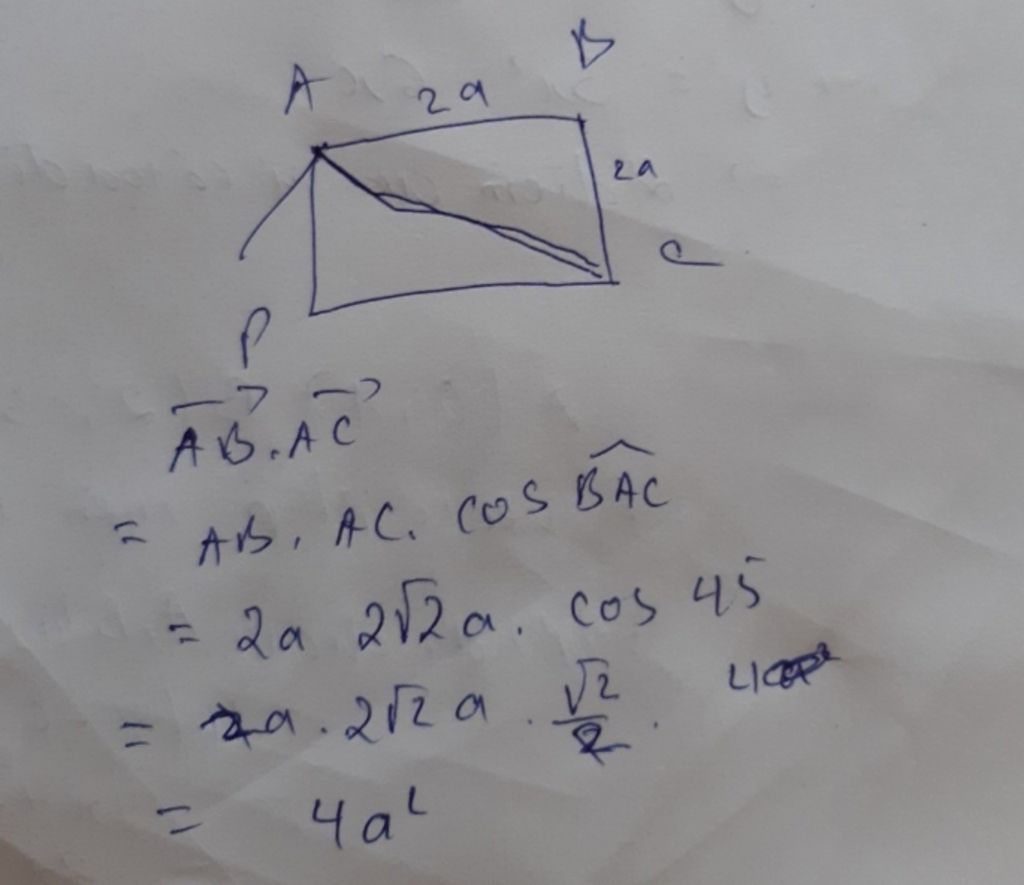 A 2a B
2a
C
P
$\overrightarrow{AB}.\overrightarrow{AC}$
= AB. AC. cos $\widehat{BAC}$
= 2a 2√2a. cos 45
= 2a . 2√2 a . $\frac{\sqrt{2}}{2}$.
= 4a²